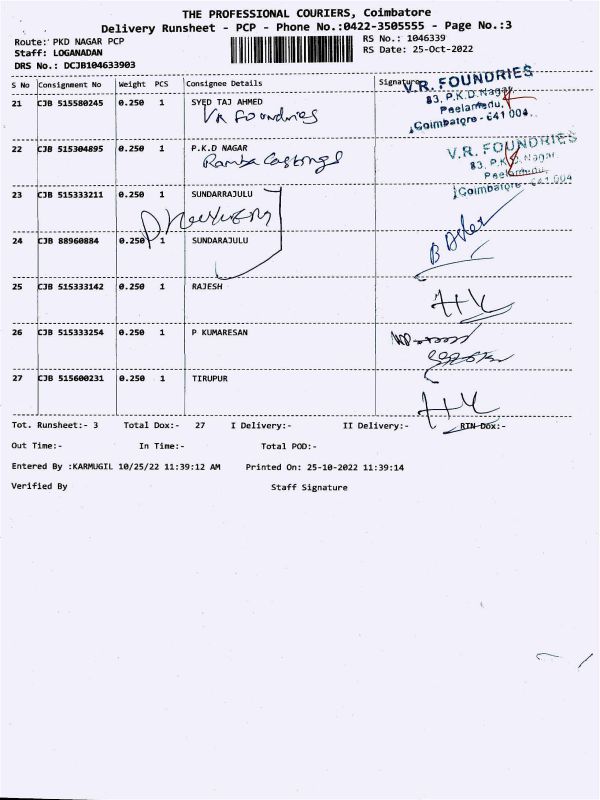 THE PROFESSIONAL COURIERS, Coimbatore
Delivery Runsheet - PCP - Phone No.:0422-3505555 - Page No.:3
Route: PKD NAGAR PCP
RS No.: 1046339
Staff: LOGANADAN
RS Date: 25-Oct-2022
DRS No.: DCJB104633903
S No Consignment No Weight PCS Consignee Details Signature
V.R. FOUNDRIES
83, P.K.D.Nagar,
Peelamedu,
Coimbatore - 641 004.
21 CJB 515580245 0.250 1 SYED TAJ AHMED
VR Foundries
22 CJB 515304895 0.250 1 P.K.D NAGAR
Ramba Castings
V.R. FOUNDRIES
83, P.K.D. Nagar
Peelamedu,
Coimbatore - 641 004
23 CJB 515333211 0.250 1 SUNDARRAJULU
24 CJB 88960884 0.250 1 SUNDARAJULU
25 CJB 515333142 0.250 1 RAJESH
26 CJB 515333254 0.250 1 P KUMARESAN
27 CJB 515600231 0.250 1 TIRUPUR
Tot. Runsheet:- 3 Total Dox:- 27 I Delivery:- II Delivery:- RTN Dox:-
Out Time:- In Time:- Total POD:-
Entered By :KARMUGIL 10/25/22 11:39:12 AM Printed On: 25-10-2022 11:39:14
Verified By Staff Signature